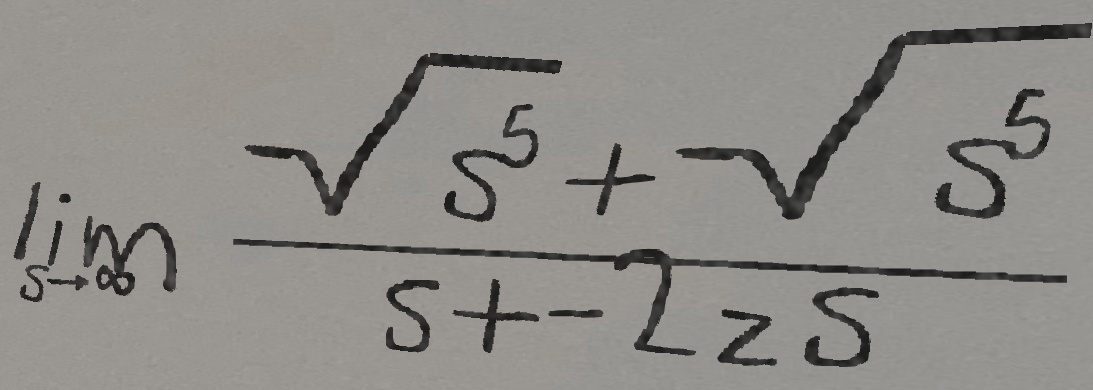 \lim_{s \to \infty} \frac{\sqrt{s^5} + \sqrt{s^5}}{s + -2zs}